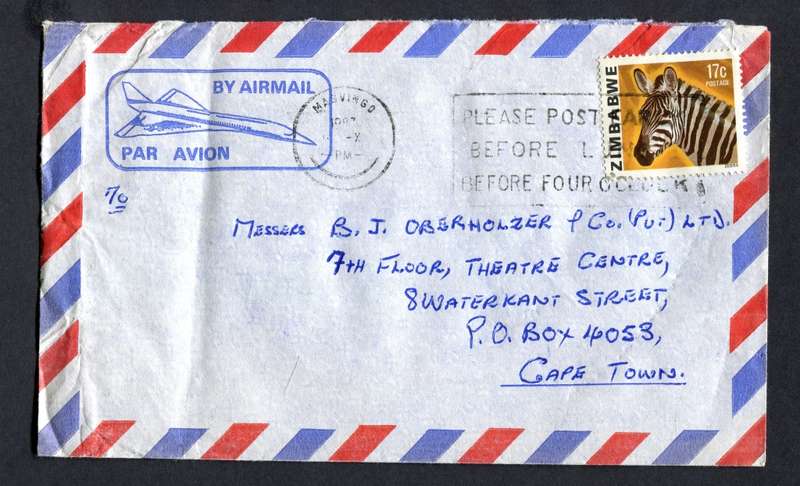 BY AIRMAIL
PAR AVION
MASVINGO
PM
PLEASE POST
BEFORE
BEFORE FOUR O'CLOCK
ZIMBABWE
17c
POSTAGE
To
MESSERS B. J. OBERHOLZER & CO. (PVT) LTD.
7TH FLOOR, THEATRE CENTRE,
8 WATERKANT STREET,
P.O. BOX 4053,
CAPE TOWN.